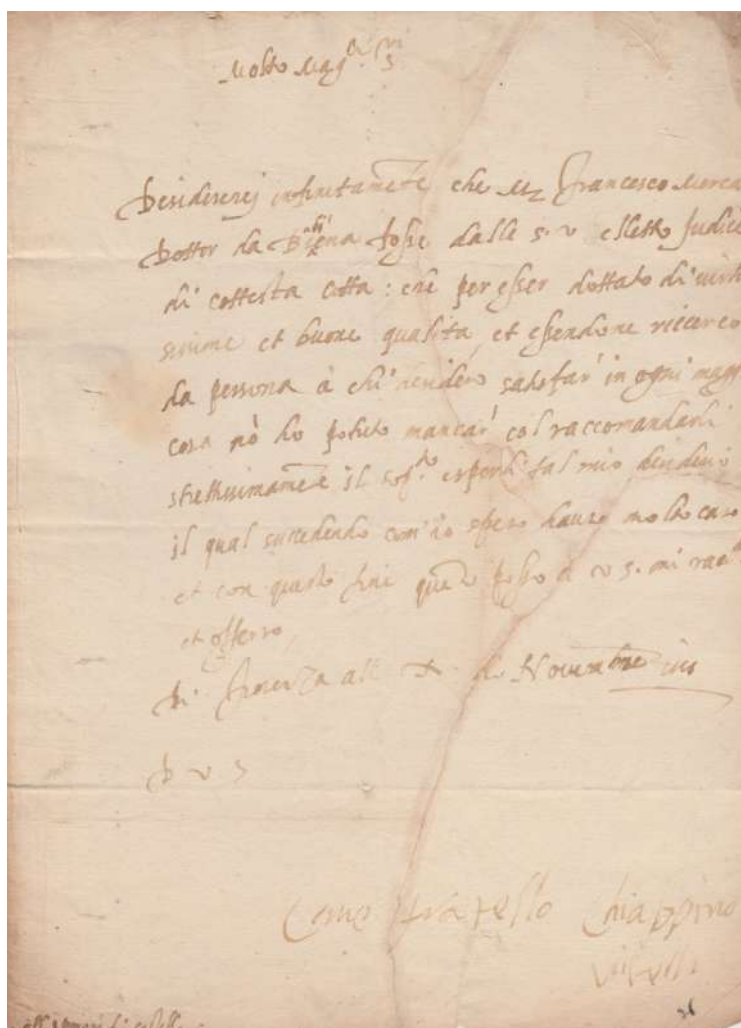 Molto Mag.ci S.ri
Desidererej infinitamēte che Mz Francesco Merca
Dottor da Bibiena fosse dalle S. V elletto Judice
di cottesta Città: chē per esser dottato di virtu
sissime et buone qualità, et essendone riccerco
da persona à chi desidero sadisfar' in ogni magr
cosa nō ho potuto mancar' col raccomandarli
strettissimamēte il sop.to esporli tal mio desiderio
il qual succedendo com'io spero haurò molto caro
et con questo fine quāto posso a V S. mi racc
et offerro,
Di Fiorenza alli X di Novembre
D V S
Come fratello Chiappino
Vitelli